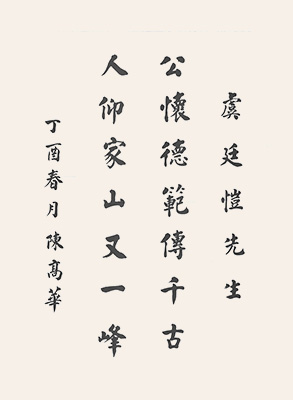 虞廷愷先生
公懷德範傳千古
人仰家山又一峰
丁酉春月陳高華